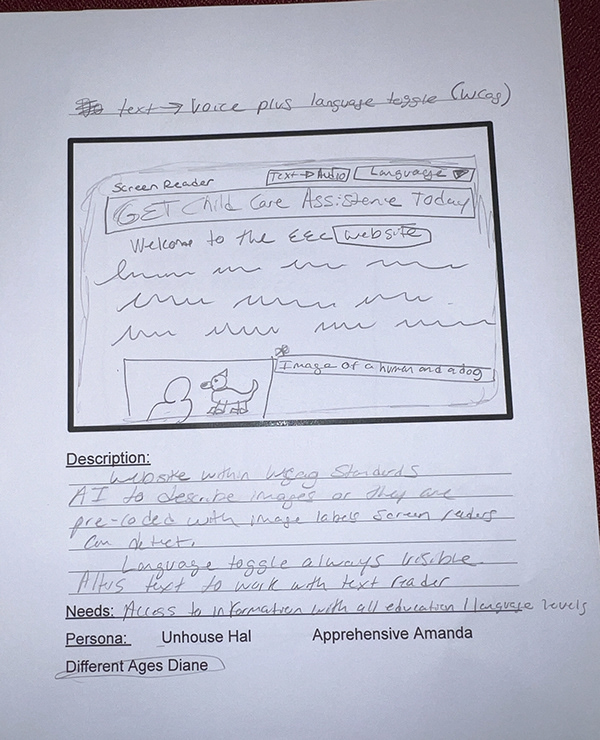 text → Voice plus language toggle (WCag)
Screen Reader
Text → Audio
Language
GET Child Care Assistence Today
Welcome to the EEC website
Image of a human and a dog
Description:
Website within Wcag Standards
AI to describe images or they are
pre-coded with image labels screen readers
can detect.
Language toggle always visible.
text to work with text reader
Needs: Access to information with all education / language levels
Persona: Unhouse Hal Apprehensive Amanda
Different Ages Diane